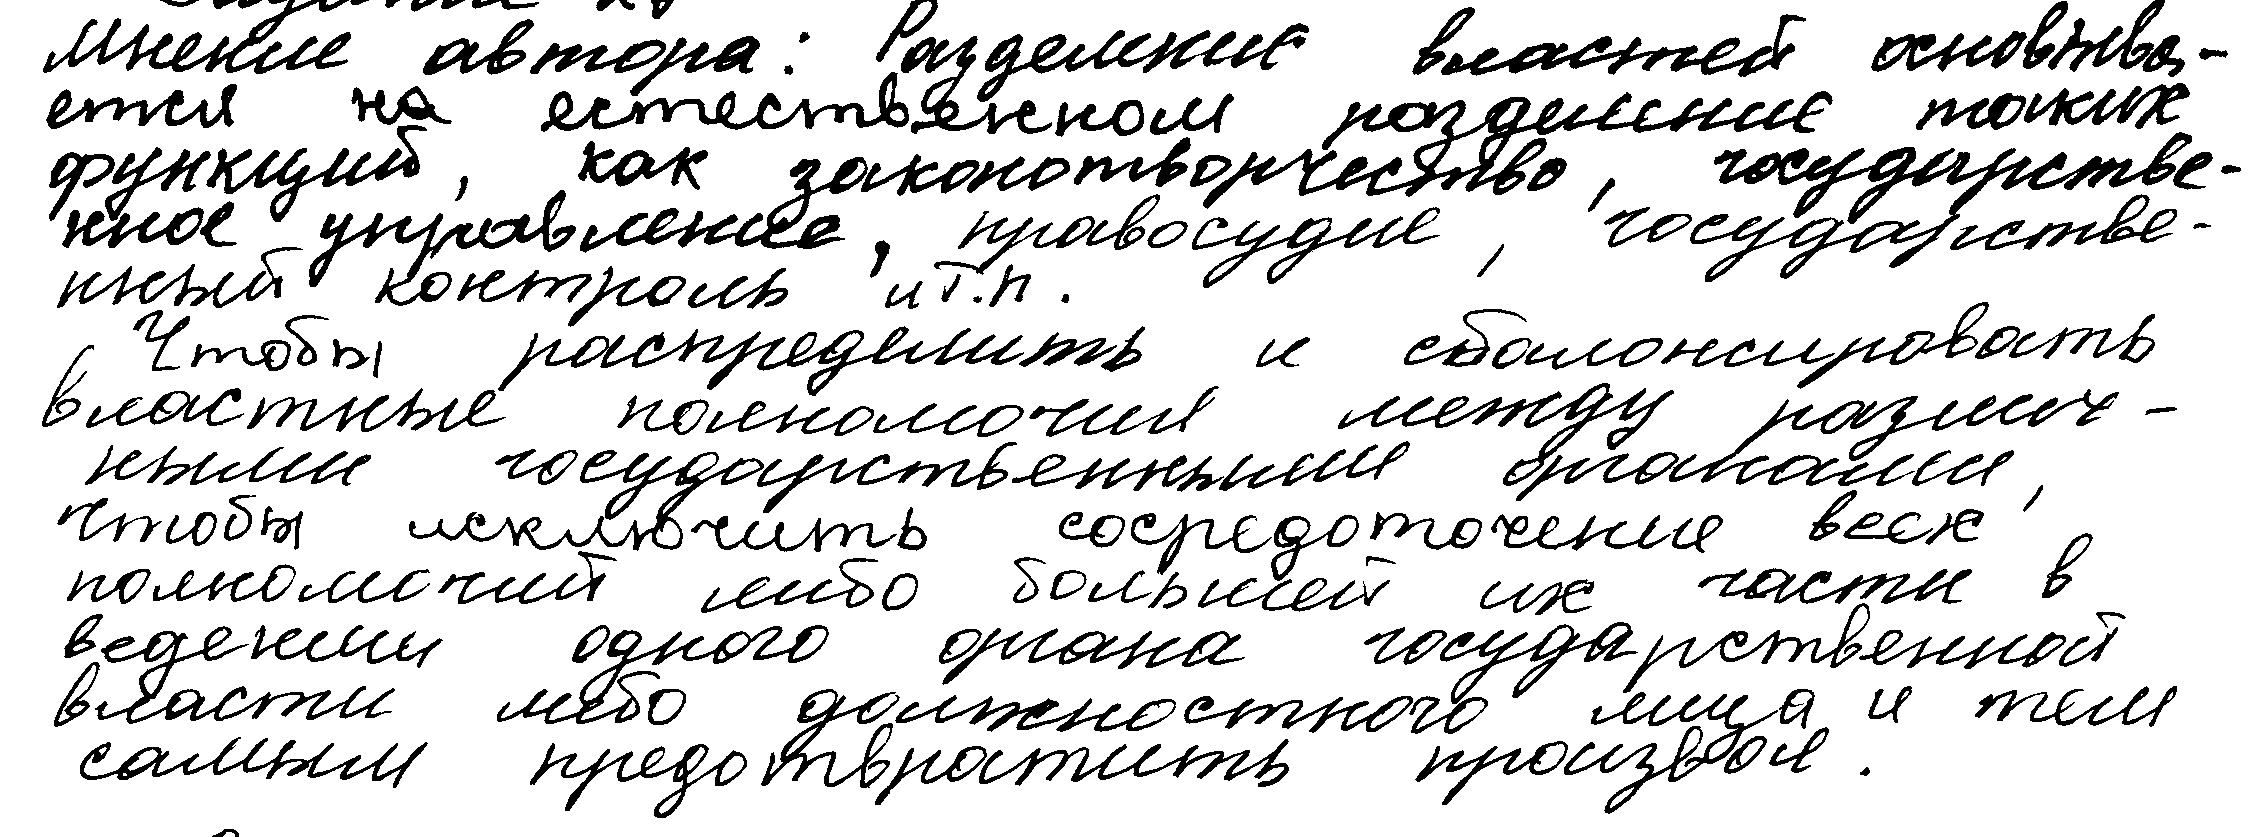 мнение автора: Разделение властей основыва-
ется на естественном разделение таких
функций, как законотворчество, государстве-
нное управление, правосудие, государстве-
нный контроль и т.п.
Чтобы распределить и сбалонсировать
властные полномочия между различ-
ными государственными органами,
чтобы исключить сосредоточение всех
полномочий либо большей их части в
ведении одного органа государственной
власти либо должностного лица и тем
самым предотвратить произвол.